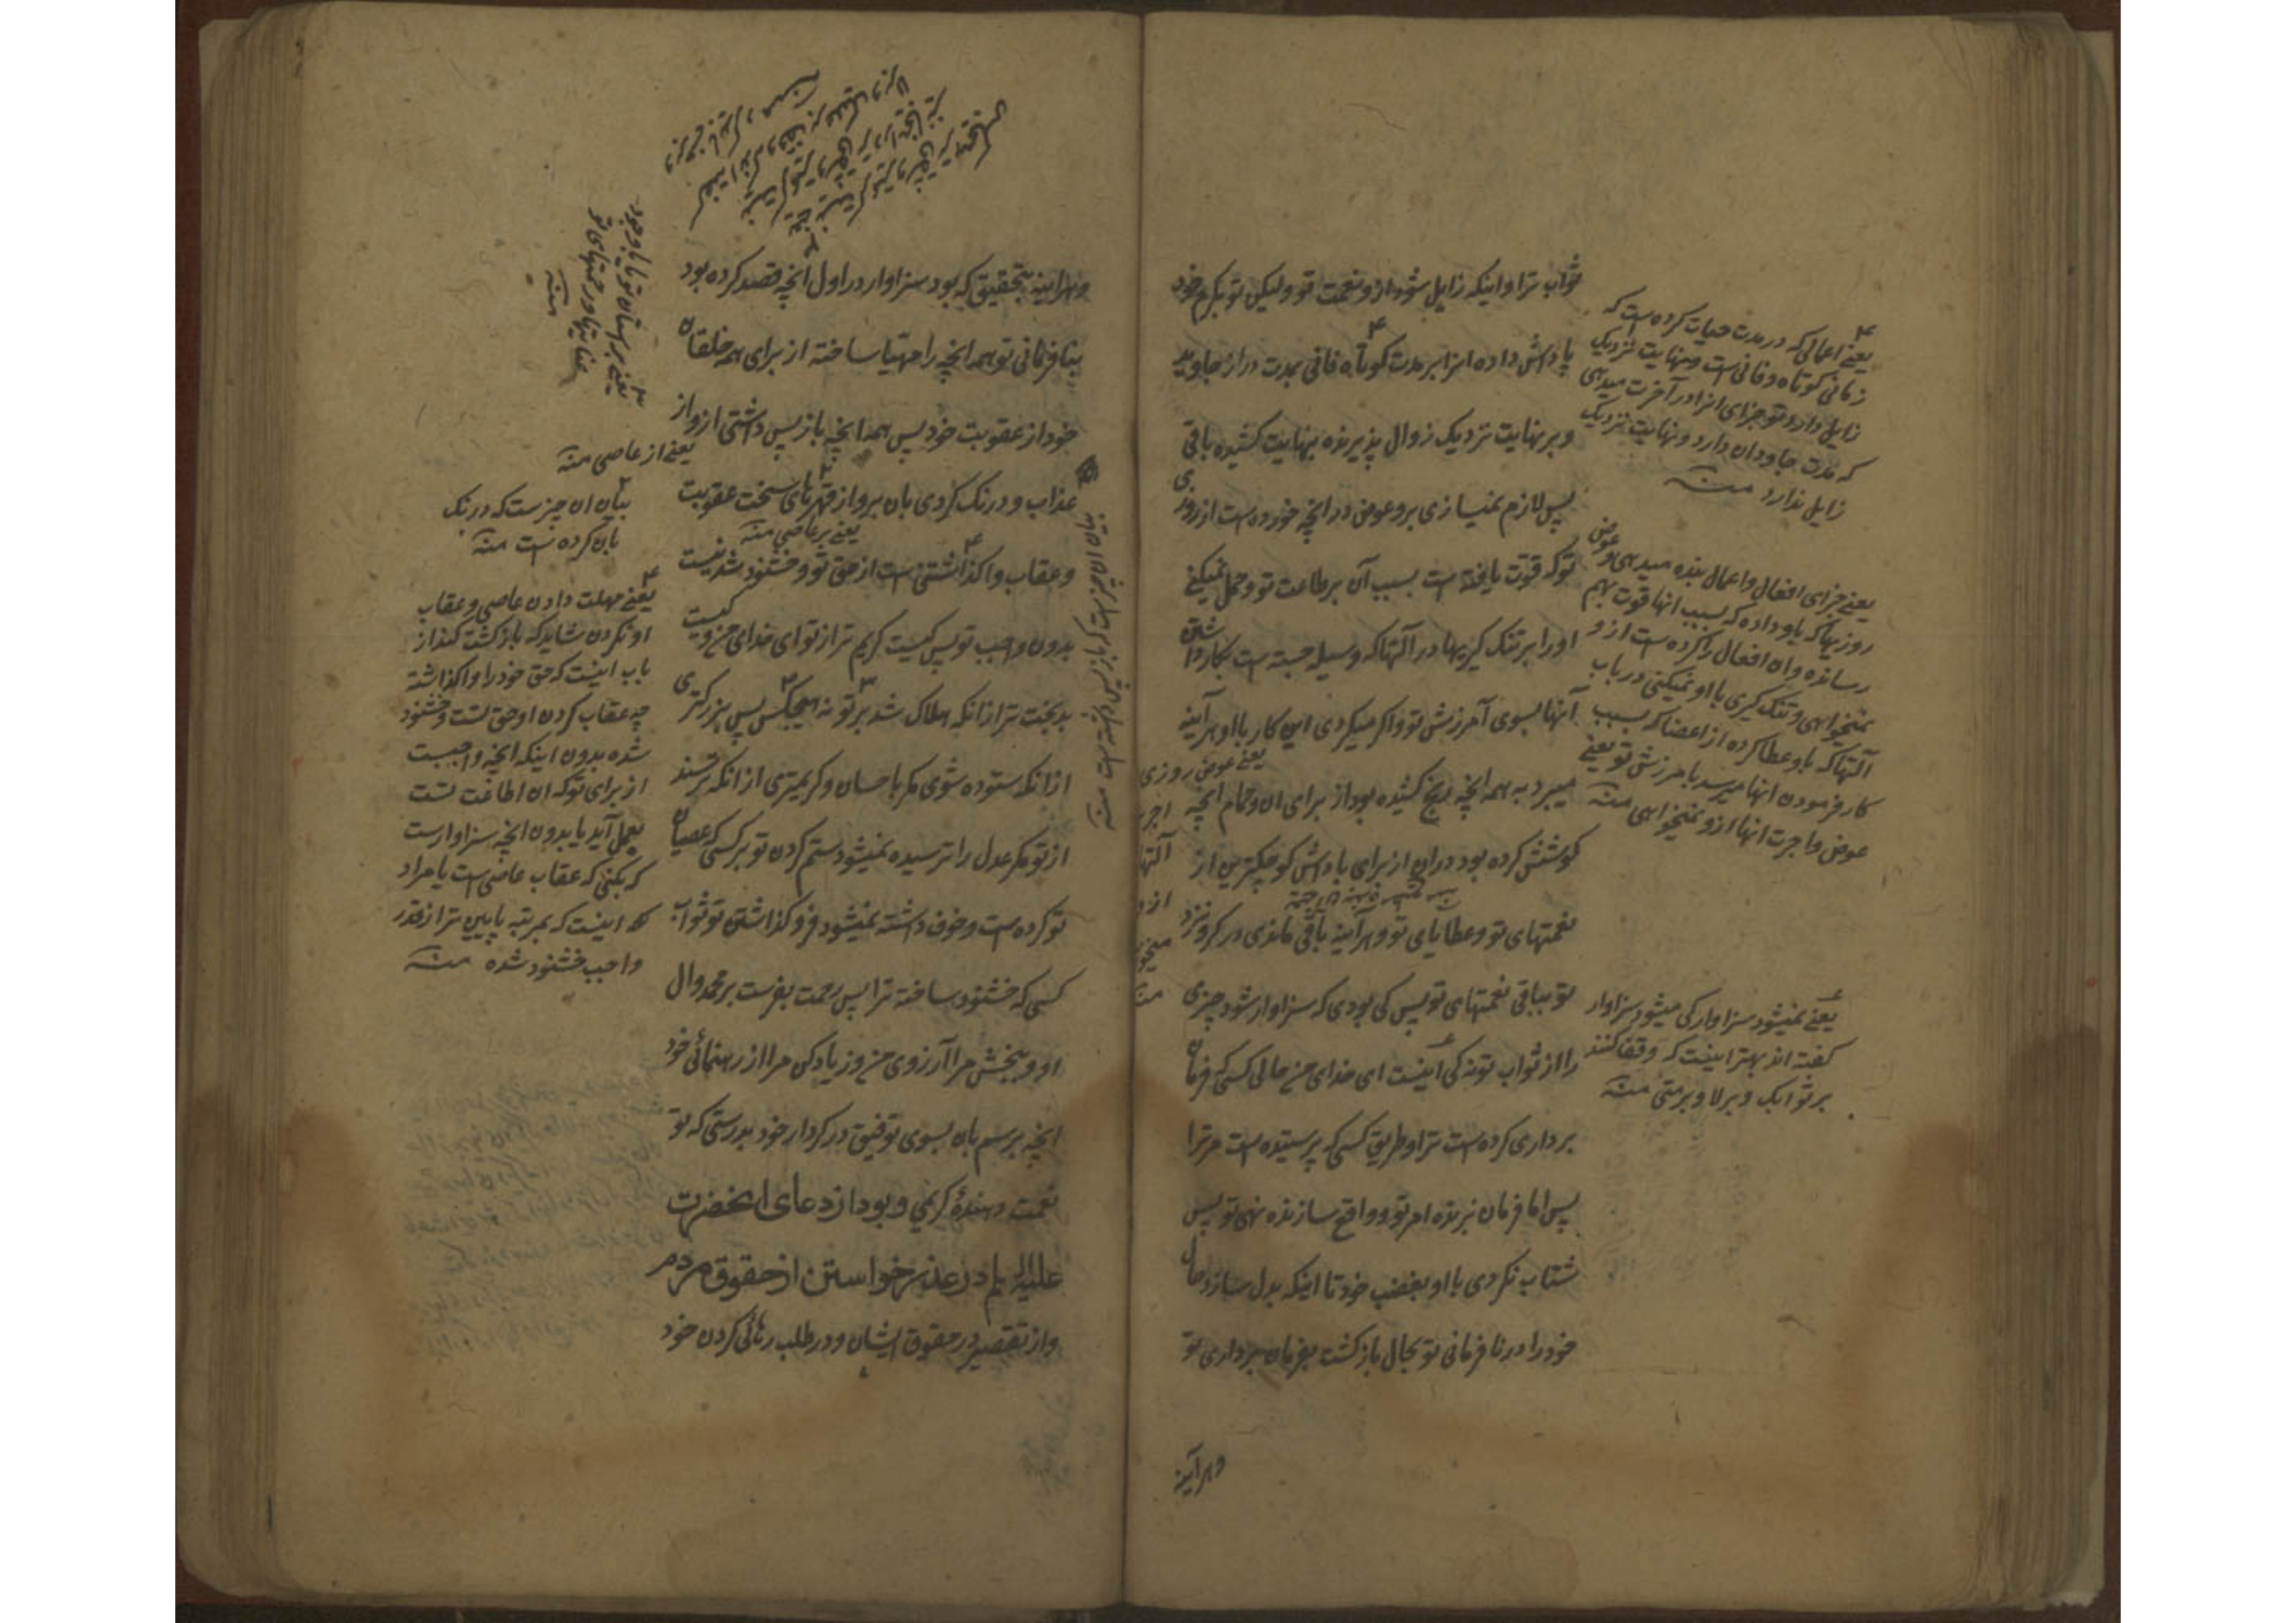 ثواب ترا و اینکه زایل شود ازو نعمت تو ولیکن تو بکرم خود
پاداش داده انرا بر مدت کوتاه فانی بمدت دراز جاوید
و بر نهایت نزدیک زوال پذیرنده بنهایت کشیده باقی
پس لازم نمیسازی برو عوض در انچه خورده است از روزی
تو که قوت یافته است بسبب آن بر طاعت تو و حمل نمیکنی
او را بر تنک کیریها در آلتها که وسیله جسته است بکار داشتن
آنها بسوی آمرزش تو و اکر میکردی این کار با او هر آینه
میبرد به همه انچه رنج کشیده بود از برای ان و تمام انچه
کوشش کرده بود در ان از برای پاداش کوچکترین از
نعمتهای تو و عطایای تو و هر آینه باقی ماندی در کرو نزد
تو بباقی نعمتهای تو پس کی بودی که سزاوار شود چیزی
را از ثواب تو نه کی اینست ای خدای من حال کسی که فرمان
برداری کرده است ترا و طریق کسی که پرستیده است مر ترا
پس اما فرمان نبرنده امر تو و واقع سازنده نهی تو پس
شتاب نکردی با او بغضب خود تا اینکه بدل سازد حال
خود را در نافرمانی تو بحال بازکشت بفرمان برداری تو
و هر آینه
یعنی اعمالی که در مدت حیات کرده است که
زمانی کوتاه و فانی است و نهایت نزدیک
زایل دارد تو جزای انرا در آخرت میدهی
که مدت جاودان دارد و نهایت نزدیک
زایل ندارد منه
یعنی جزای افعال و اعمال بنده میدهی و عوض
روزیها که باو داده که بسبب انها قوت بهم
رسانده و ان افعال را کرده است از و
نمیخواهی و تنک کیری با او نمیکنی در باب
آلتها که باو عطا کرده از اعضا که بسبب
کار فرمودن انها میرسد بامرزش تو یعنی
عوض و اجرت انها ازو نمیخواهی منه
یعنی عوض روزی
یعنی نمیشود سزاوار کی میشود سزاوار
کفته اند بهتر اینست که وقف کنند
بر ثوابک و بر لا و بر متی منه
و هر اینه بتحقیق که بود سزاوار در اول انچه قصد کرده بود
بنافرمانی تو همه انچه را مهیا ساخته از برای همه خلقان
خود از عقوبت خود پس همه انچه باز پس داشتی ازو از
عذاب و درنک کردی بان برو از قهرهای سخت عقوبت
و عقاب واکذاشتنی است از حق تو و خشنود شدنیست
بدون واجب تو پس کیست کریم تر از تو ای خدای من و کیست
بدبخت تر از انکه هلاک شد بر تو نه هیچکس پس بزرکتری
از انکه ستوده شوی مکر باحسان و کریمتری از انکه ترسند
از تو مکر عدل را ترسیده نمیشود ستم کردن تو بر کسی که عصیان
تو کرده است و خوف داشته نمیشود فرو کذاشتن تو ثواب
کسی که خشنود ساخته ترا پس رحمت بفرست بر محمد و ال
او و ببخش مرا آرزوی من و زیاد کن مرا از رهنمائی خود
انچه برسم بان بسوی توفیق در کردار خود بدرستی که تو
نعمت دهندهٔ کریمی و بود از دعای انحضرت
علیه السلام در عذر خواستن از حقوق مردم
و از تقصیر در حقوق ایشان و در طلب رهائی کردن خود
یعنی بر استان تو یا با وجود
عنایتها و رحمتهای تو
منه
یعنی از عاصی منه
بیان ان چیزست که درنک
بان کرده است منه
یعنی بر عاصی منه
یعنی مهلت دادن عاصی و عقاب
او نکردن شاید که بازکشت کند از
باب اینست که حق خود را واکذاشته
چه عقاب کردن او حق تست و خشنود
شده بدون اینکه انچه واجبست
از برای تو که ان اطاعت تست
بعمل آید یا بدون انچه سزاوارست
که بکنی که عقاب عاصی است یا مراد
اینست که بمرتبه پایین تر از قدر
واجب خشنود شده منه